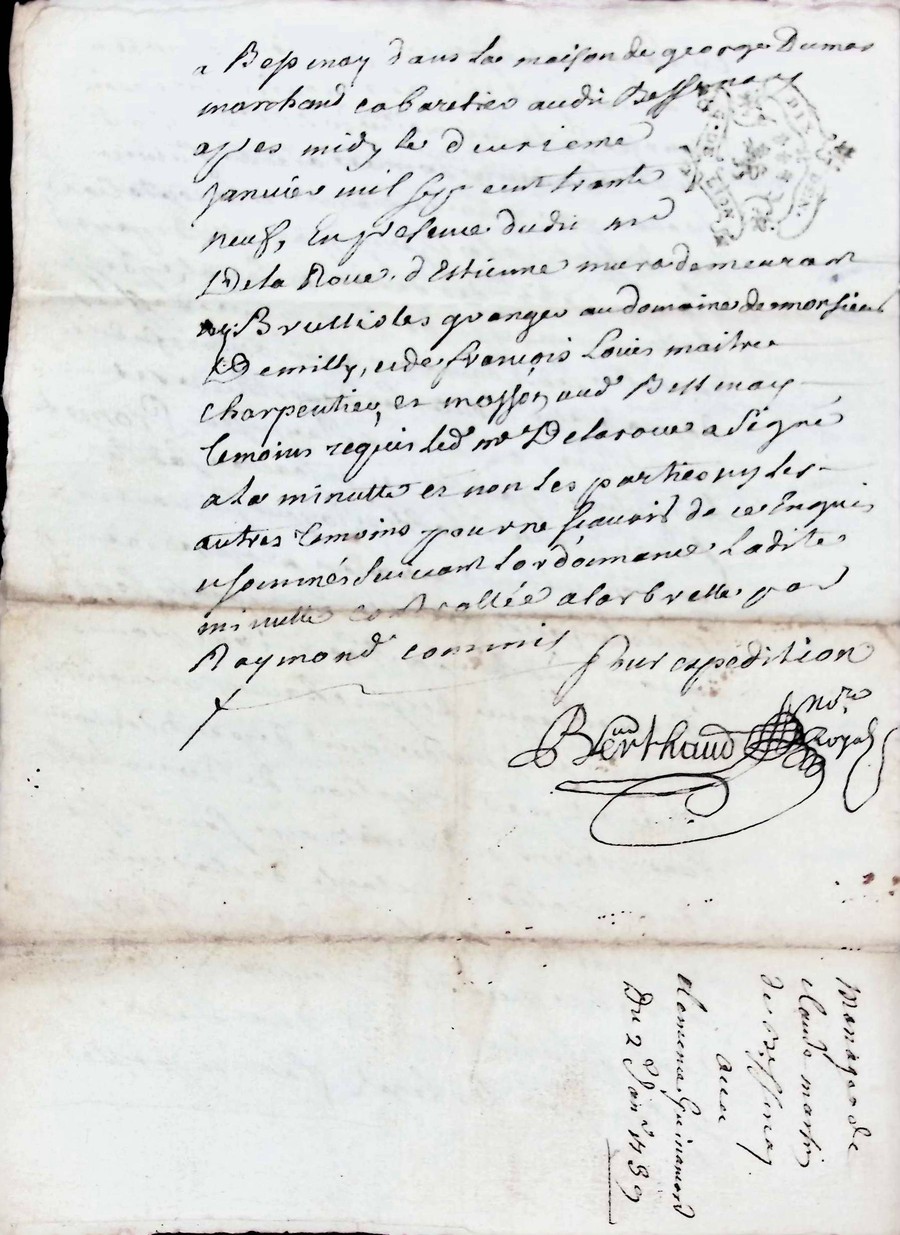 a Bessenay dans la maison de george Dumas
marchand cabaretier audit Bessenay
apres midy le deuxieme
Janvier mil sept cent trante
neuf, En presence dudit mr
De la Roue, d'Estienne mura demeurant
Brussioles granger au domaine de monsieur
Demilly, et de françois Louis maitre
charpentier et masson aud Bessenay
temoins requis led mr Delaroue a signé
a la minutte et non les parties ny les
autres temoins pour ne sçavoir de ce Enquis
et sommés suivant lordonnance Ladite
minutte controllée a larbrelle par
Raymond commis
Pour expedition
Berthaud
nore
Royal
Mariage de
claude martin
de Bessenay
avec
clemence Guinamord
Du 2 Janr 1739